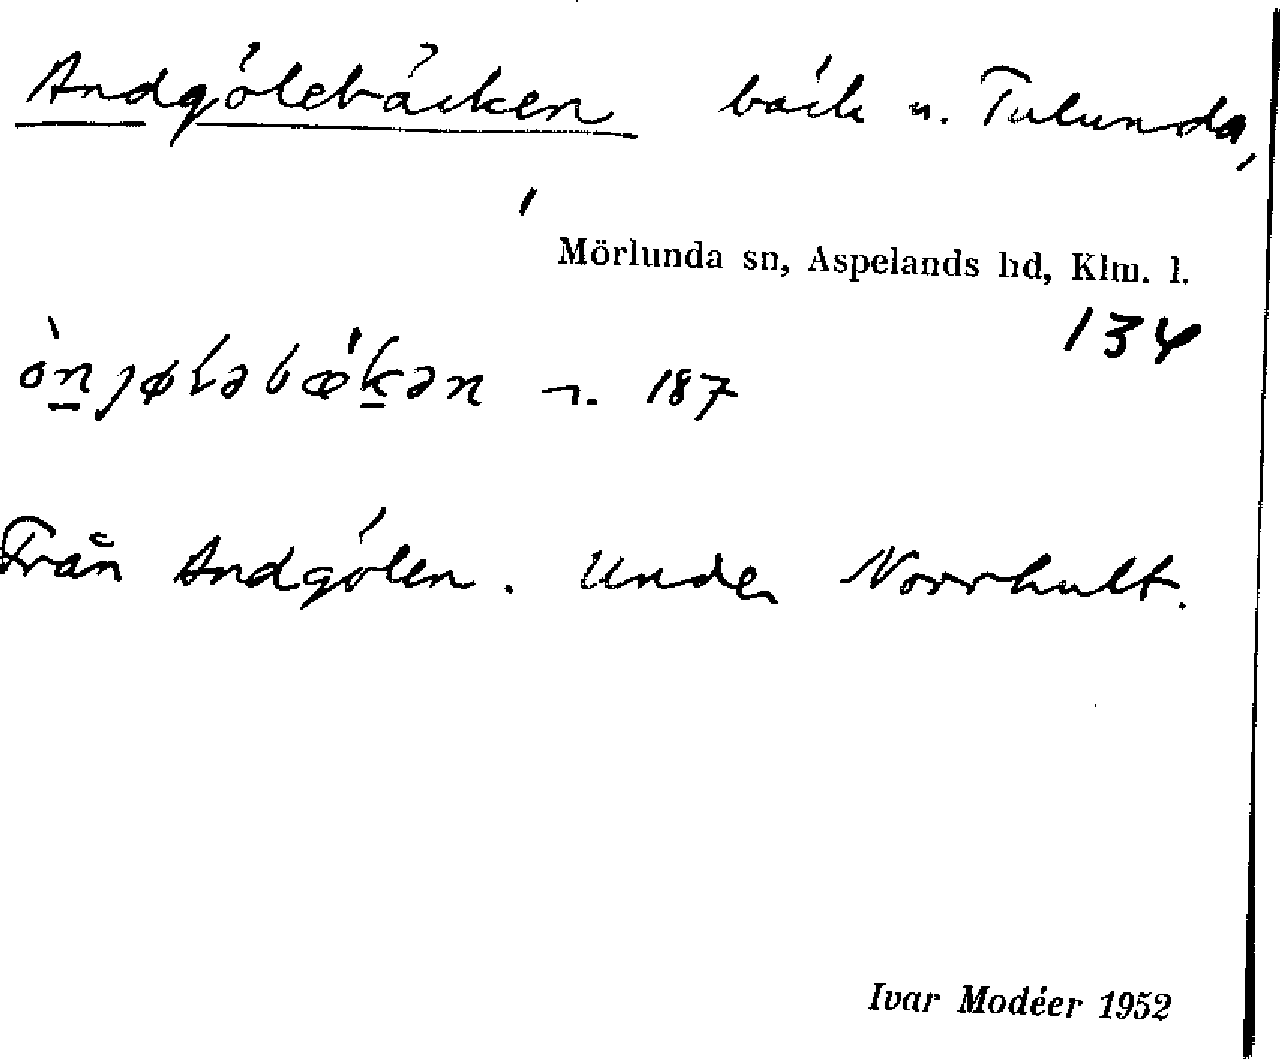 Andgölebäcken bäck u. Tulunda,
i
Mörlunda sn, Aspelands hd, Klm. l.
134
187
Från Andgölen. Under Norrhult.
Ivar Modéer 1952